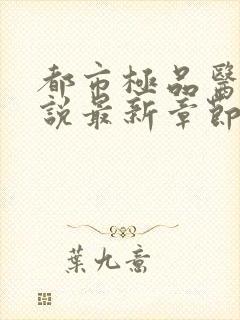 都市極品醫
說最新章節
葉九宸